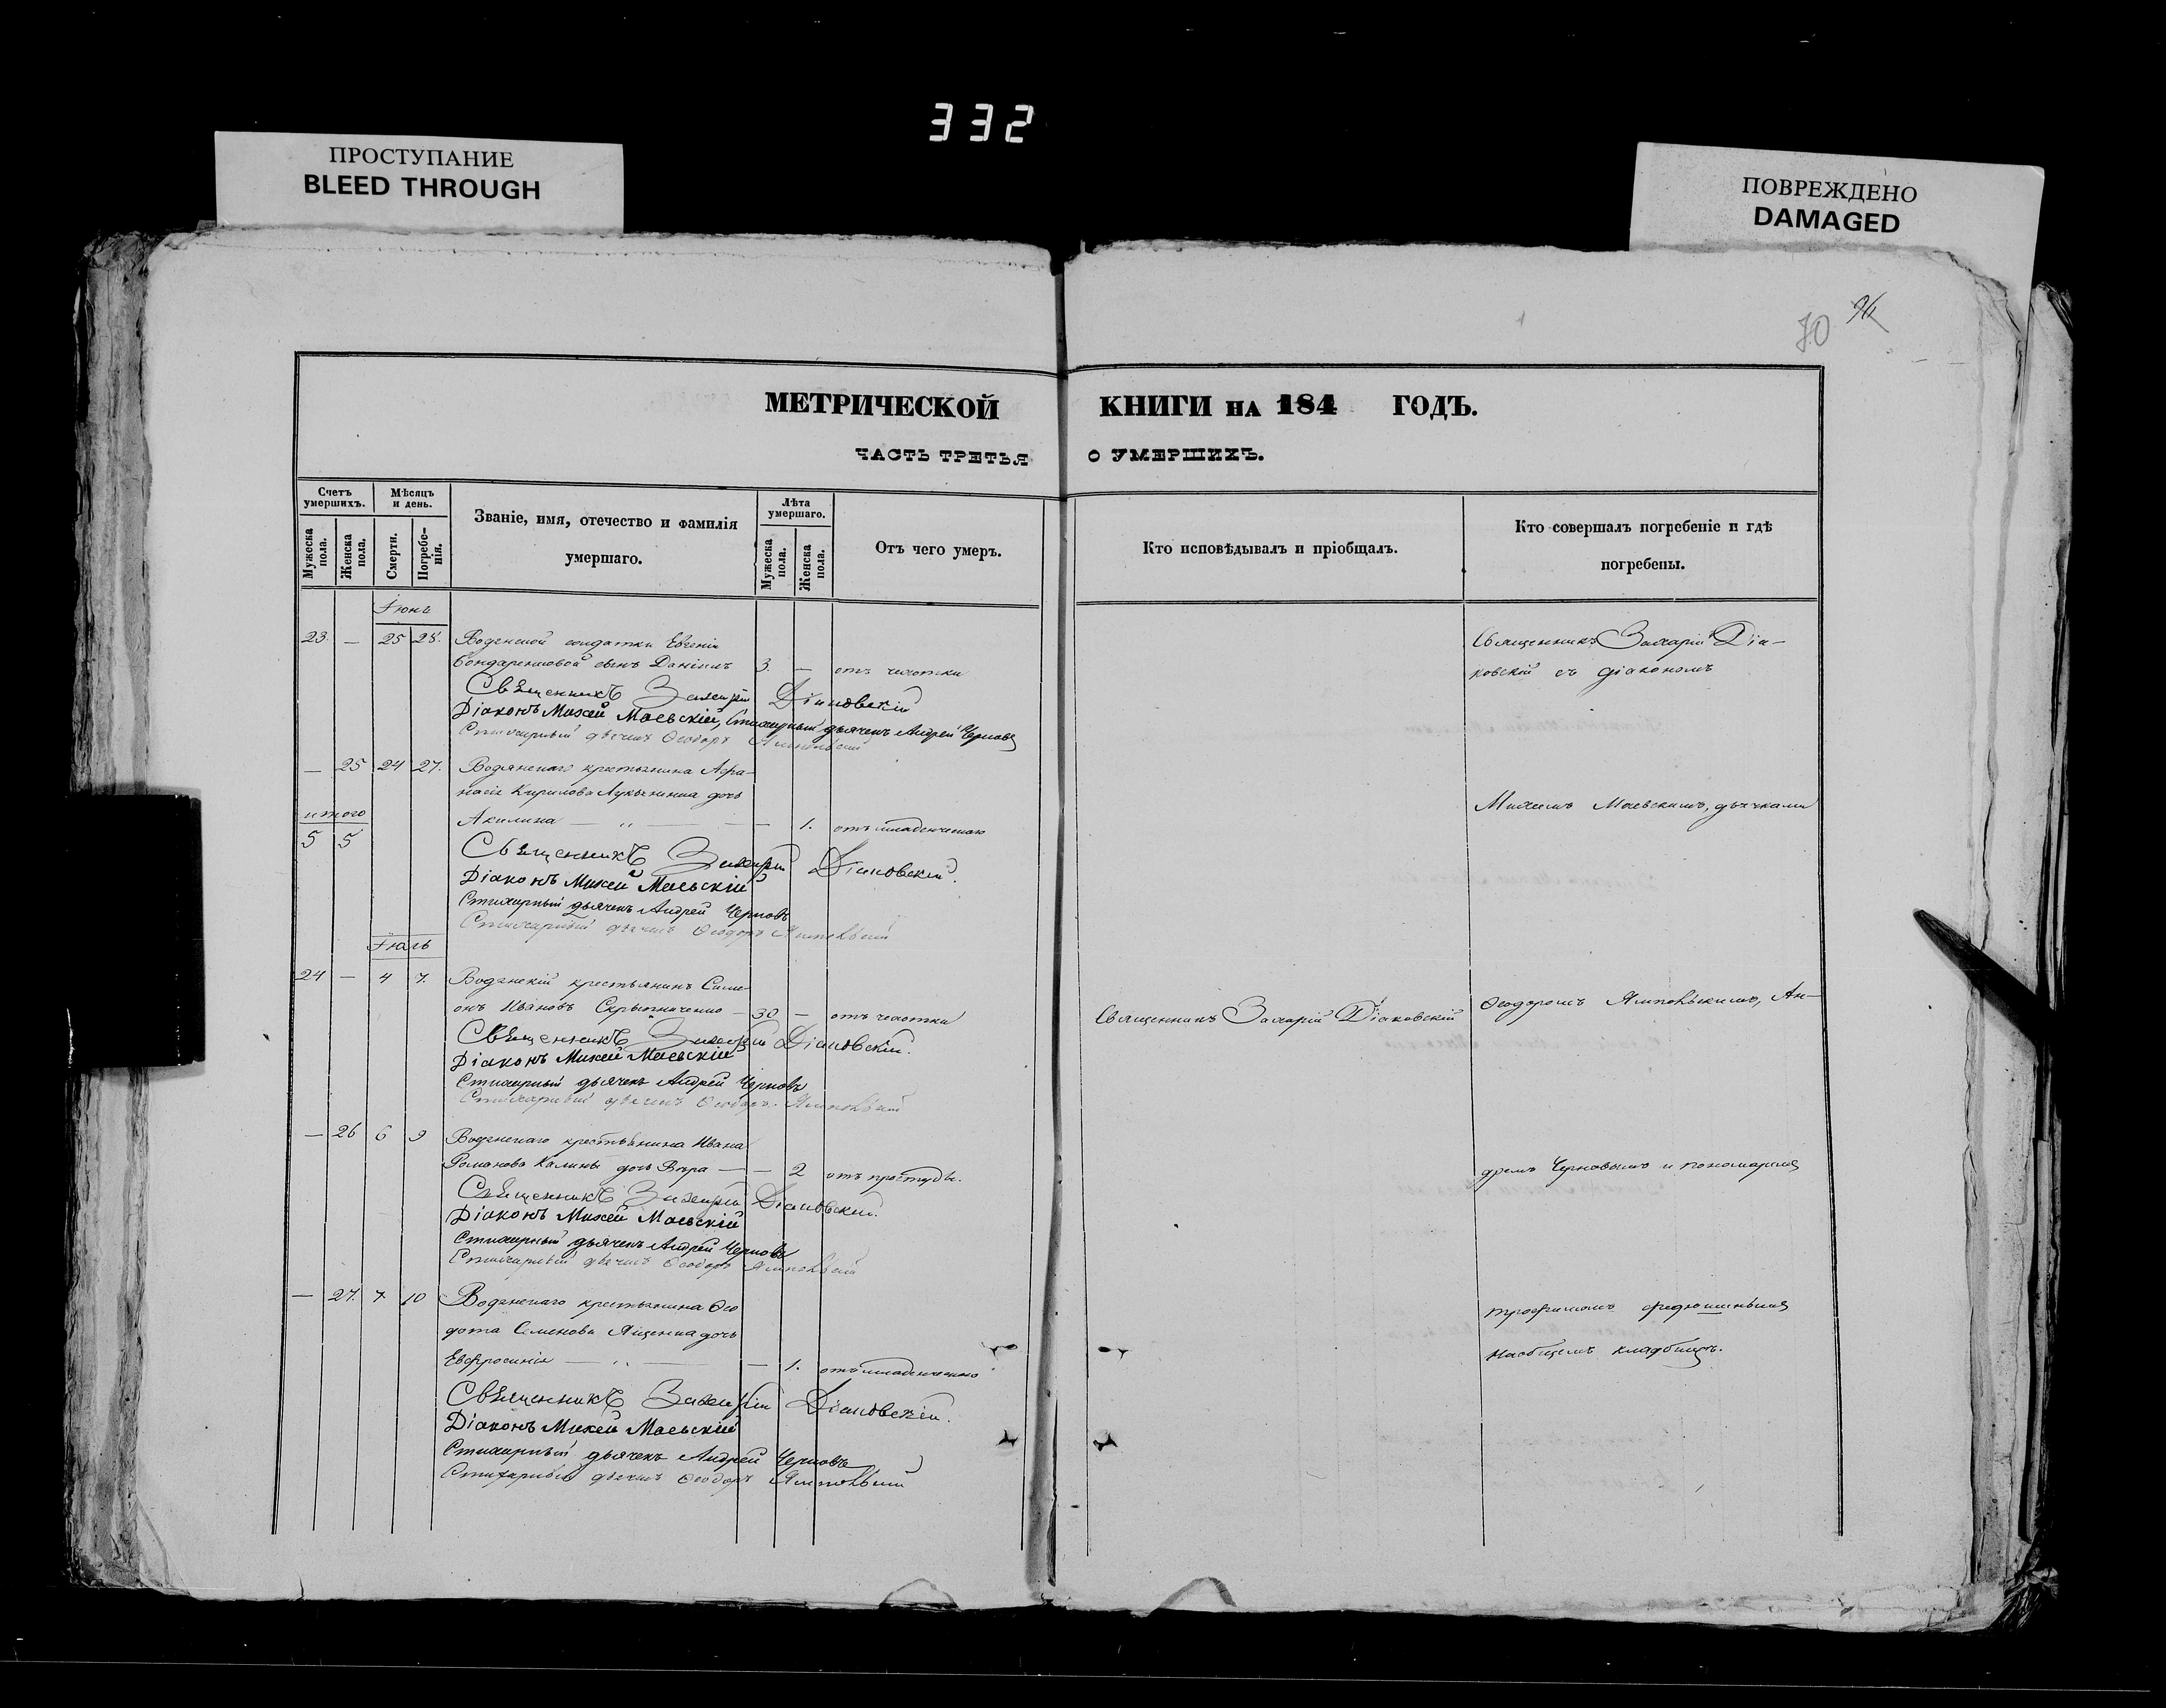 332
ПРОСТУПАНИЕ
BLEED THROUGH
ПОВРЕЖДЕНО
DAMAGED
70
МЕТРИЧЕСКОЙ КНИГИ НА 184 ГОДЪ.
ЧАСТЬ ТРЕТЬЯ О УМЕРШИХЪ.
Счетъ умершихъ.
Мужеска пола.
Женска пола.
Мѣсяцъ и день.
Смерти.
Погребенія.
Званіе, имя, отечество и фамилія умершаго.
Лѣта умершаго.
Мужеска пола.
Женска пола.
Отъ чего умеръ.
Кто исповѣдывалъ и пріобщалъ.
Кто совершалъ погребеніе и гдѣ погребены.
Іюнь
23. — 25 28. солдатки Евгеніи
сынъ Даніилъ 3. — отъ чахотки
Священникъ Захарій Діаковскій
Діаконъ Михей Маевскій, Стихарный дьячекъ Андрей Черновъ
Стихарный дьячекъ Ѳеодоръ
Священникъ Захарій Діа-
ковскій съ діакономъ
— 25 24 27. Водянскаго крестьянина Аѳа-
насія Кирилова дочь
итого
Акилина — „ — — 1. отъ младенческаго
5 5
Священникъ Захарій Діаковскій.
Діаконъ Михей Маевскій
Стихарный дьячекъ Андрей Черновъ
Стихарный дьячекъ Ѳеодоръ
Михеемъ Маевскимъ, дьячками
Іюль
24 — 4 7. Водянскій крестьянинъ Симе-
онъ Ивановъ — 30 — отъ чахотки
Священникъ Захарій Діаковскій
Священникъ Захарій Діаковскій.
Діаконъ Михей Маевскій
Стихарный дьячекъ Андрей Черновъ
Стихарный дьячекъ Ѳеодоръ
Ѳеодоромъ Ан-
— 26 6 9 Водянскаго крестьянина Ивана
Романова Калины дочь Вѣра — — 2 отъ простуды.
Священникъ Захарій Діаковскій.
Діаконъ Михей Маевскій
Стихарный дьячекъ Андрей Черновъ
Стихарный дьячекъ Ѳеодоръ
дреемъ Черновымъ и пономаремъ
— 27. 7. 10 Водянскаго крестьянина Ѳео
дота Семенова Яценка дочь
Евфросинія — „ — — 1. отъ младенческаго
Священникъ Захарій Діаковскій.
Діаконъ Михей Маевскій
Стихарный дьячекъ Андрей Черновъ
Стихарный дьячекъ Ѳеодоръ
трофимомъ
на общемъ кладбищѣ.